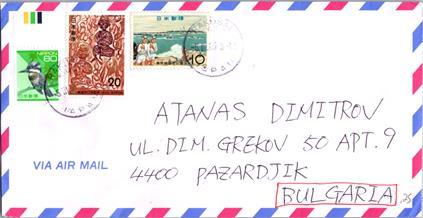 NIPPON
80
日本郵便
20
日本郵便
10
JAPAN
ATANAS DIMITROV
UL. DIM. GREKOV 50 APT. 9
4400 PAZARDJIK
BULGARIA
VIA AIR MAIL